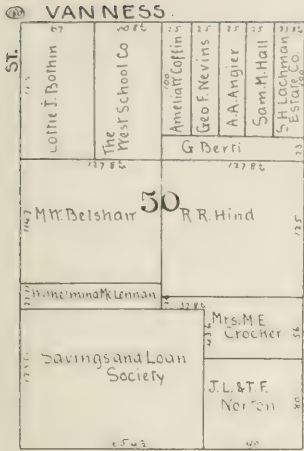 VAN NESS
ST.
Lottie J. Bothin
The West School Co
Amelia Coffin
Geo F. Nevins
A.A. Angier
Sam. M. Hall
S.H Lachman Estate Co.
25
25
25
25
100
G Berri
23
127 8½
127 8½
50
M.W. Belshaw
R R. Hind
125
Wilhelmina McLennan
Mrs. M E Crocker
56
Savings and Loan Society
J. L. & T. F. Norton
80